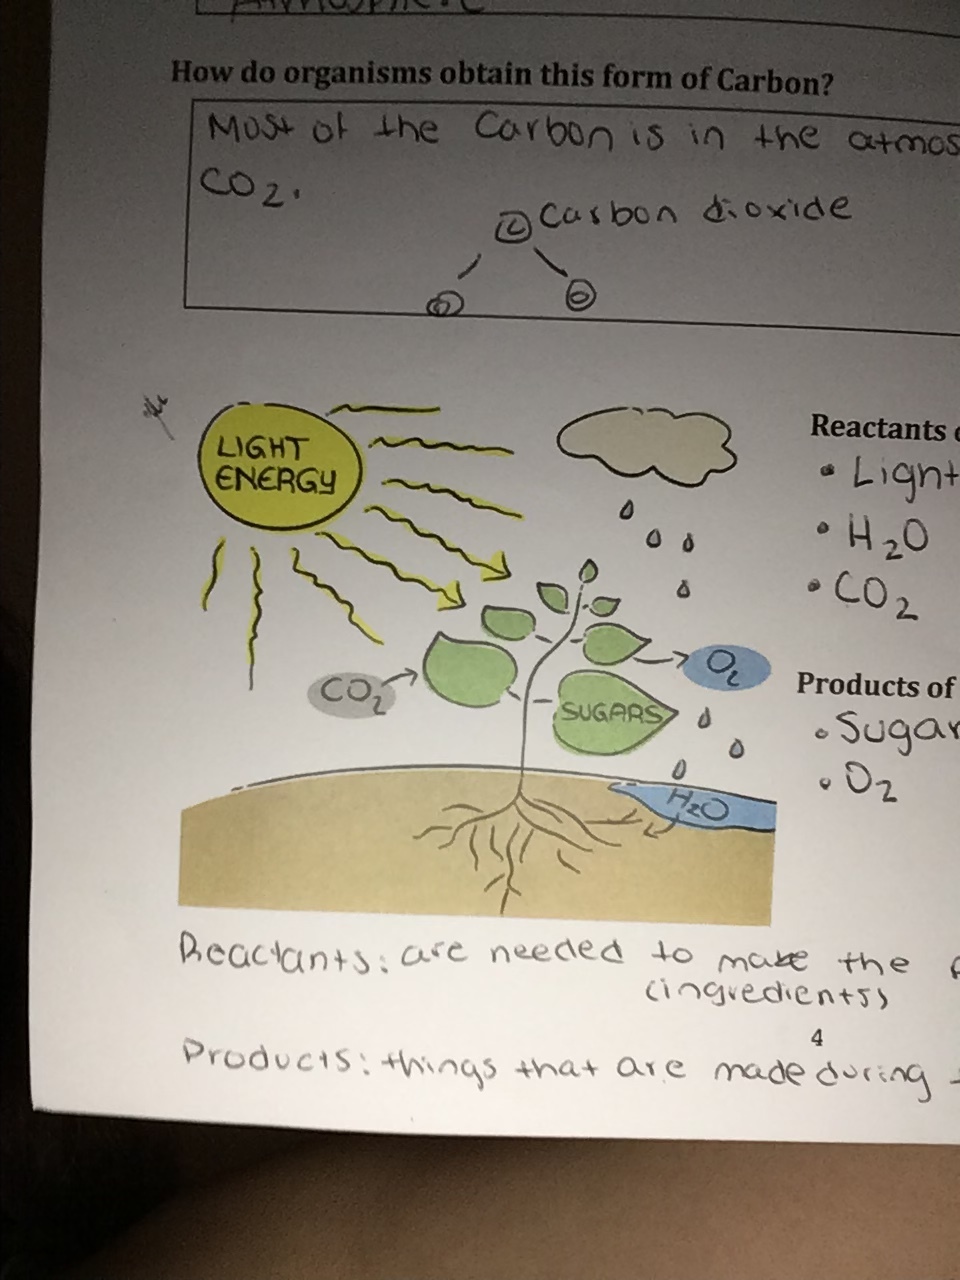 How do organisms obtain this form of Carbon?
Most of the Carbon is in the atmos
CO2.
Carbon dioxide
C
O
LIGHT
ENERGY
Reactants
Light
H2O
CO2
CO2
O2
SUGARS
Products of
Sugar
O2
H2O
Reactants: are needed to make the
(ingredients)
4
Products: things that are made during